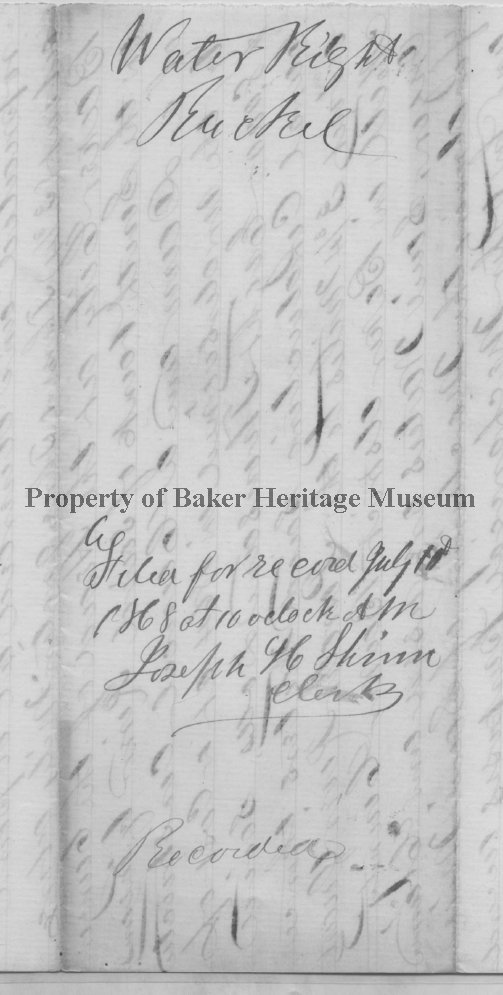 Water Right
Ruckel
Property of Baker Heritage Museum
Filed for record July
1868 at 10 oclock A M
Joseph H Shinn
Clerk
Recorded